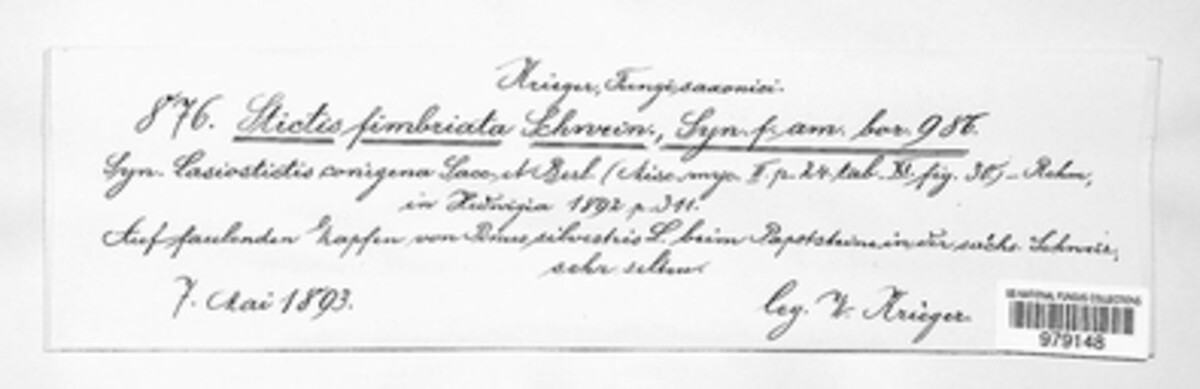 Krieger, Fungi saxonici.
876. Stictis fimbriata Schwein., Syn. f. am. bor. 986.
Syn. Lasiostictis conigena Sacc. et Berl. (Misc. myc. II. p. 24. tab. XI. fig. 30) – Rehm,
in Hedwigia 1892 p. 311.
Auf faulenden Zapfen von Pinus silvestris L. beim Papststeine in der sächs. Schweiz,
sehr selten.
7. Mai 1893.
leg. W. Krieger.
US NATIONAL FUNGUS COLLECTIONS
979148